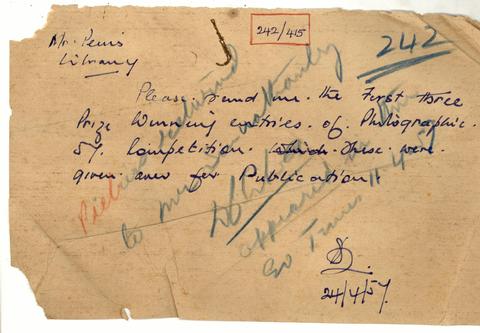 242/415
242
Mr. Peiris
Library
Please send me the First three
Prize Winning entries of Photographic
Competition. which these were
given over for Publication.
Pictures returned
to me
appeared in
Times 11 4 57
24/4/57.